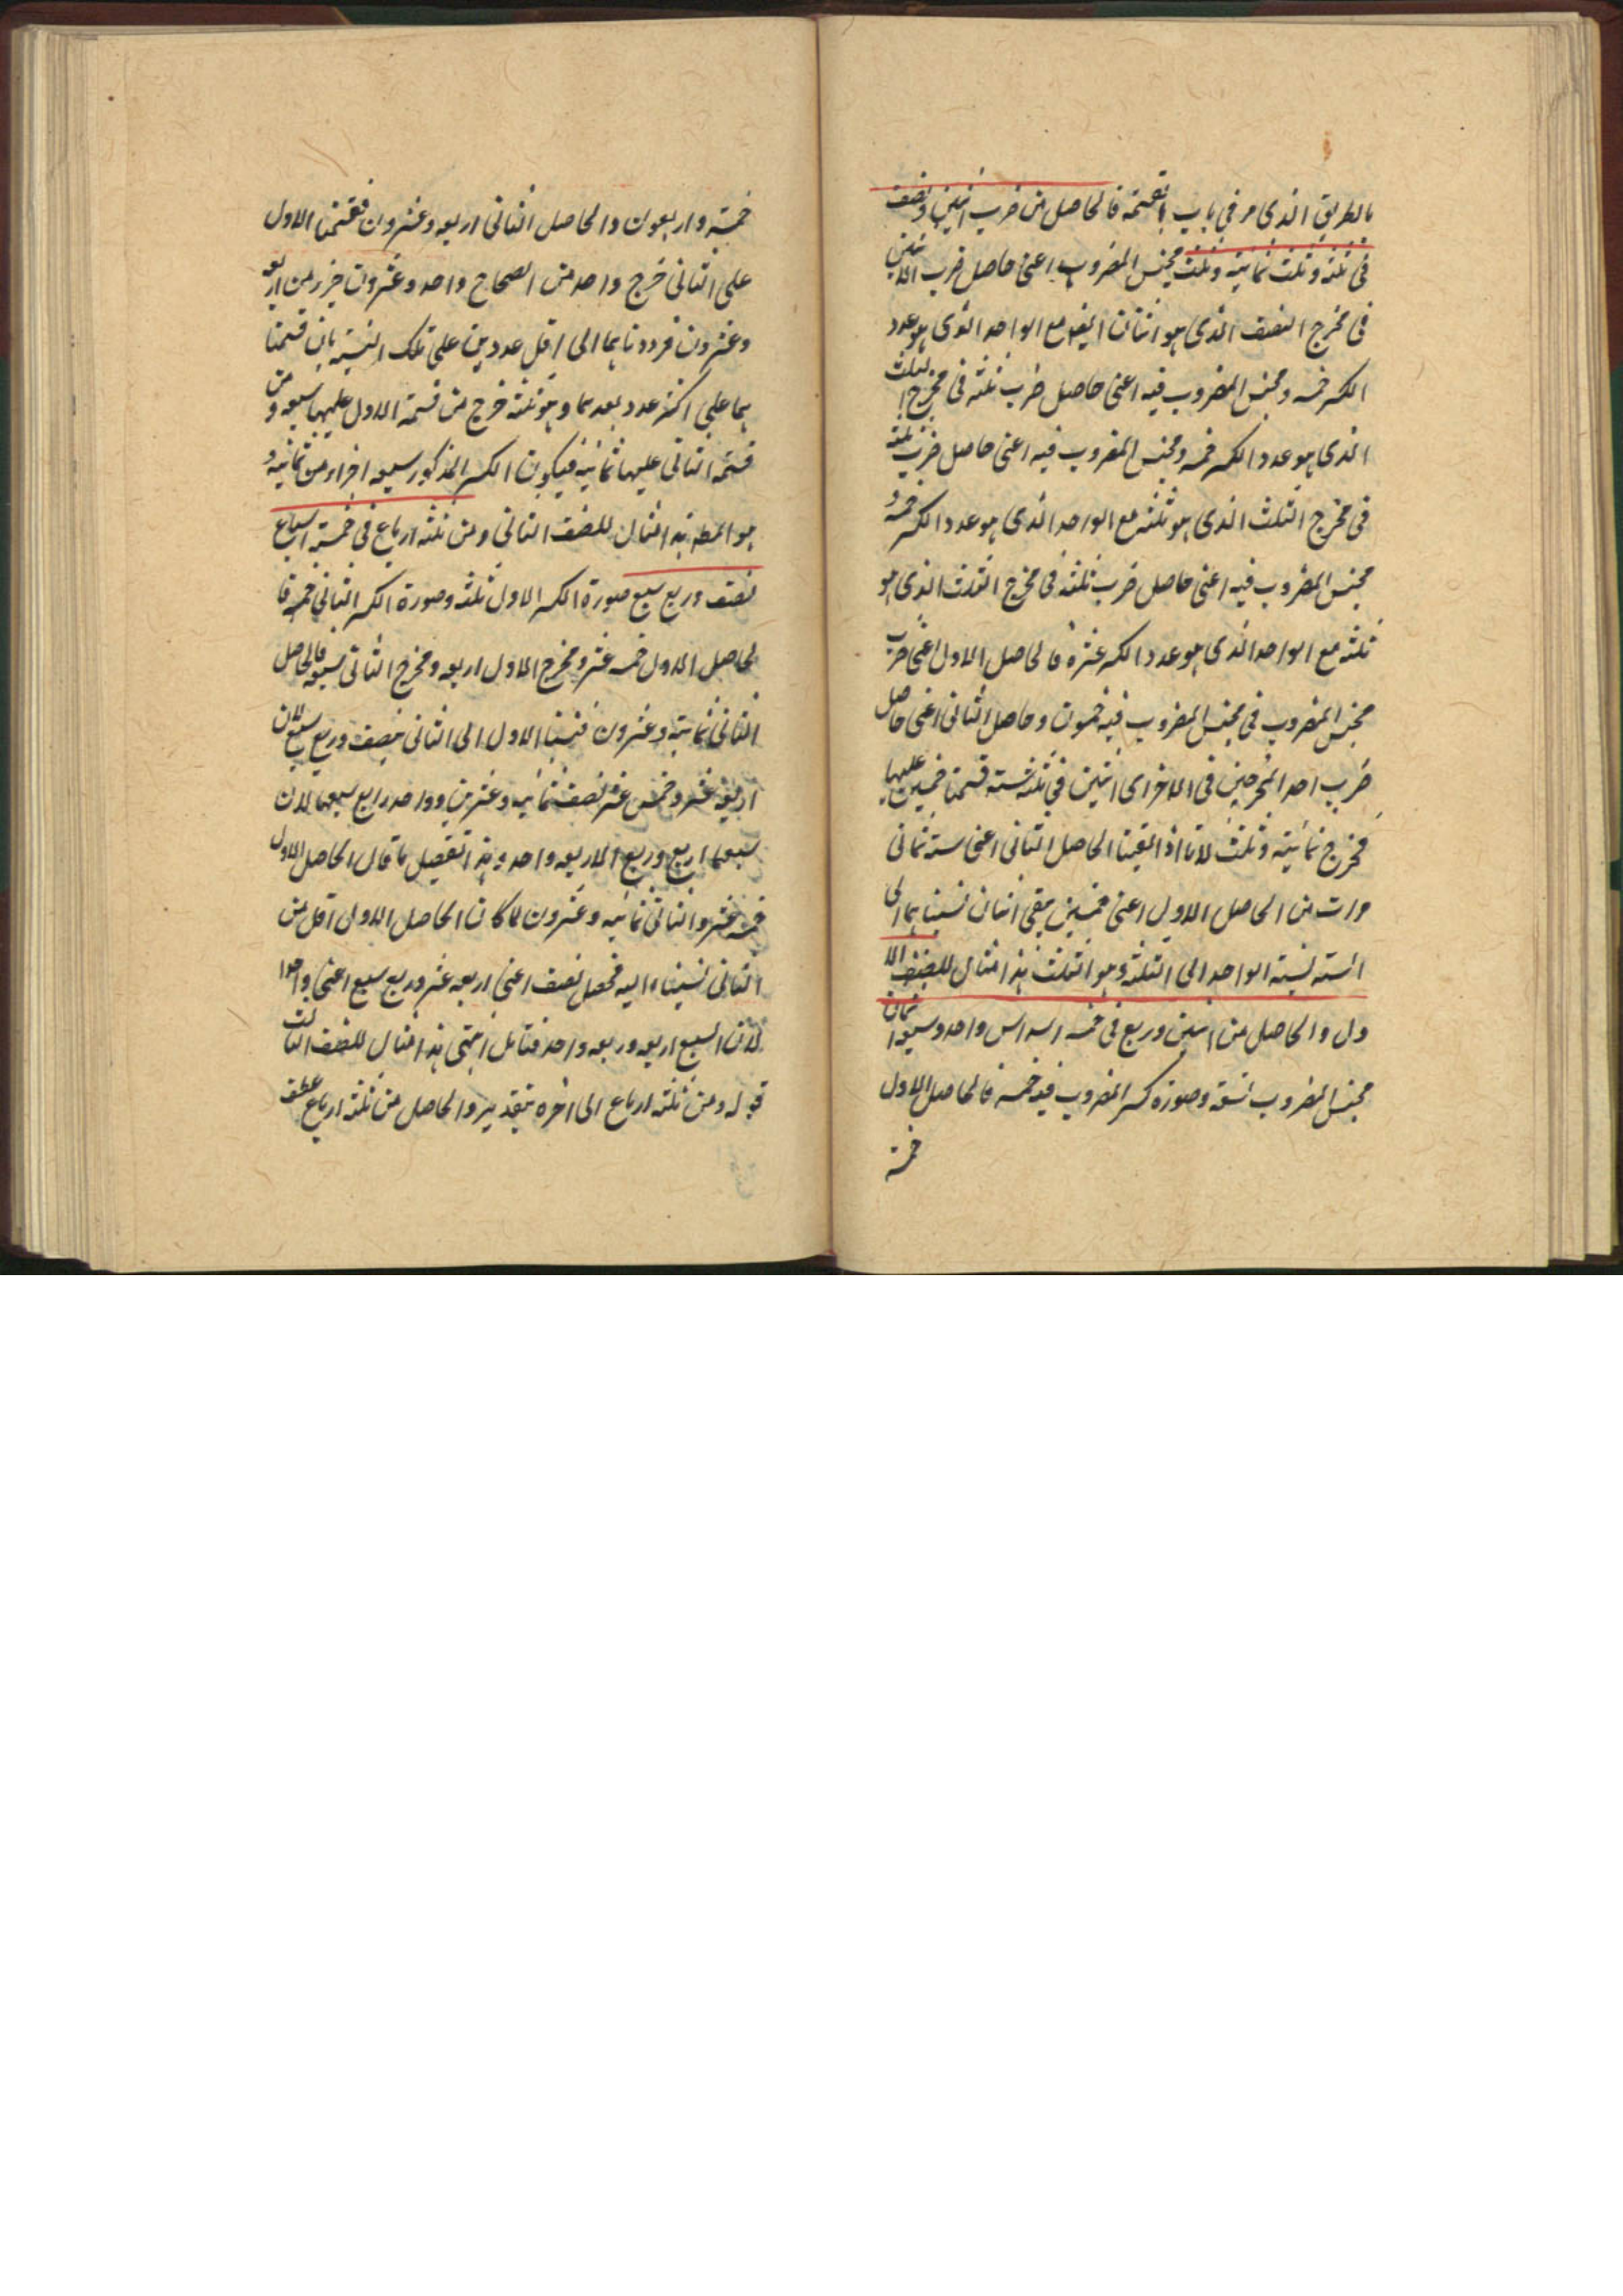 بالطريق الذى مر فى باب القسمة فالحاصل من ضرب اثنين ونصف
فى ثلثة وثلث ثمانية وثلث مجنس المضروب اعنى حاصل ضرب الاثنين
فى مخرج النصف الذى هو اثنان ايضا مع الواحد الذى هو عدد
الكسر خمسة ومجنس المضروب فيه اعنى حاصل ضرب ثلثة فى مخرج الثلث
الذى هو عدد الكسر خمسة ومجنس المضروب فيه اعنى حاصل ضرب ثلثة
فى مخرج الثلث الذى هو ثلثة مع الواحد الذى هو عدد الكسر خمسة و
مجنس المضروب فيه اعنى حاصل ضرب ثلثة فى مخرج الثلث الذى هو
ثلثة مع الواحد الذى هو عدد الكسر عشرة فالحاصل الاول اعنى ضرب
مجنس المضروب فى مجنس المضروب فيه خمسون وحاصل الثانى اعنى حاصل
ضرب احد المخرجين فى الاخر اى اثنين فى ثلثة ستة قسمنا خمسين عليها
فخرج ثمانية وثلث لانا اذا القينا الحاصل الثانى اعنى ستة ثمانى
مرات من الحاصل الاول اعنى خمسين بقى اثنان نسبناهما الى
الستة نسبة الواحد الى الثلثة وهو الثلث هذا مثال للصنف الا
ول والحاصل من اثنين وربع فى خمسة اسداس واحد وسبعة اثمان
مجنس المضروب تسعة وصورة كسر المضروب فيه خمسة فالحاصل الاول
خمسة
خمسة واربعون والحاصل الثانى اربعة وعشرون فقسمنا الاول
على الثانى خرج واحد من الصحاح واحد وعشرون جزء من اربعة
وعشرون فرددناهما الى اقل عددين على تلك النسبة بان قسمنا
هما على اكثر عدد يعدهما وهو ثلثة خرج من قسمة الاول عليها سبعة ومن
قسمة الثانى عليها ثمانية فيكون الكسر المذكور سبعة اجزاء من ثمانية و
هو المط هذا مثال للصنف الثانى ومن ثلثة ارباع فى خمسة اسباع
نصف وربع سبع صورة الكسر الاول ثلثة وصورة الكسر الثانى خمسة فا
لحاصل الاول خمسة عشر ومخرج الاول اربعة ومخرج الثانى سبعة فالحاصل
الثانى ثمانية وعشرون فنسبنا الاول الى الثانى بنصف وربع سبع لان
اربعة عشر وخمس عشر نصف ثمانية وعشرين وواحد رابع سبعها لان
سبعها اربع وربع الاربعة واحد وهذا تفصيل ما قال الحاصل الاول
خمسة عشر والثانى ثمانية وعشرون لما كان الحاصل الاول اقل من
الثانى نسبناه اليه فحصل نصف اعنى اربعة عشر وربع سبع اعنى واحدا
لان السبع اربعة وربعه واحد فتأمل انتهى هذا مثال للصنف الثالث
قوله ومن ثلثة ارباع الى اخره بتقدير والحاصل من ثلثة ارباع عطف